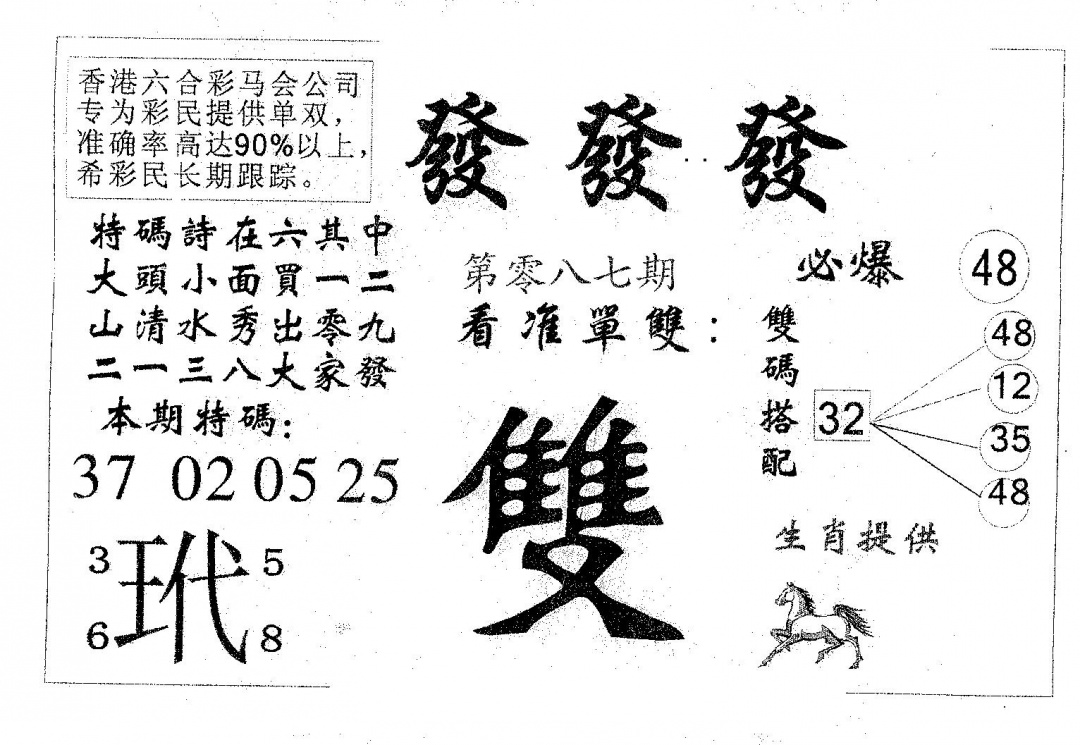 香港六合彩马会公司
专为彩民提供单双，
准确率高达90%以上，
希彩民长期跟踪。
發 發 發
特碼詩在六其中
大頭小面買一二
山清水秀出零九
二一三八大家發
本期特碼：
37 02 05 25
3 5
玳
6 8
第零八七期
看准單雙：
雙
必爆 48
雙碼搭配
32
48
12
35
48
生肖提供